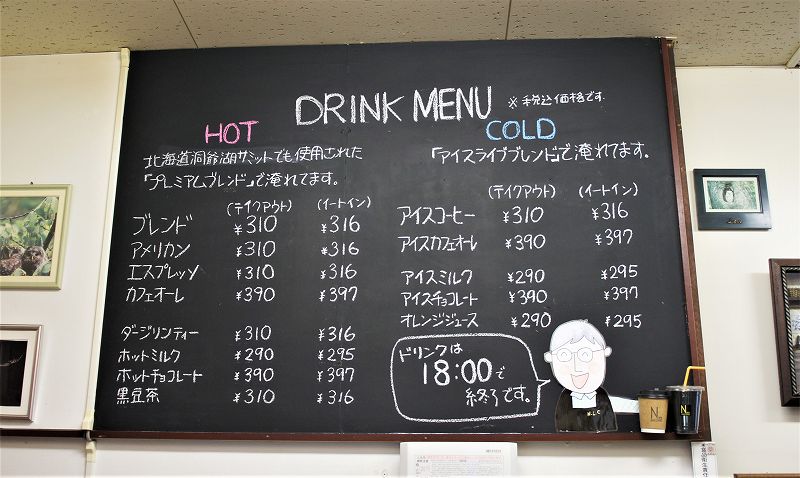 DRINK MENU ※税込価格です.
HOT
北海道洞爺湖サミットでも使用された
「プレミアムブレンド」で淹れてます。
(テイクアウト) (イートイン)
ブレンド ¥310 ¥316
アメリカン ¥310 ¥316
エスプレッソ ¥310 ¥316
カフェオーレ ¥390 ¥397
ダージリンティー ¥310 ¥316
ホットミルク ¥290 ¥295
ホットチョコレート ¥390 ¥397
黒豆茶 ¥310 ¥316
COLD
「アイスライブブレンド」で淹れてます。
(テイクアウト) (イートイン)
アイスコーヒー ¥310 ¥316
アイスカフェオーレ ¥390 ¥397
アイスミルク ¥290 ¥295
アイスチョコレート ¥390 ¥397
オレンジジュース ¥290 ¥295
ドリンクは
18:00で
終了です。
N.L.C
N
N